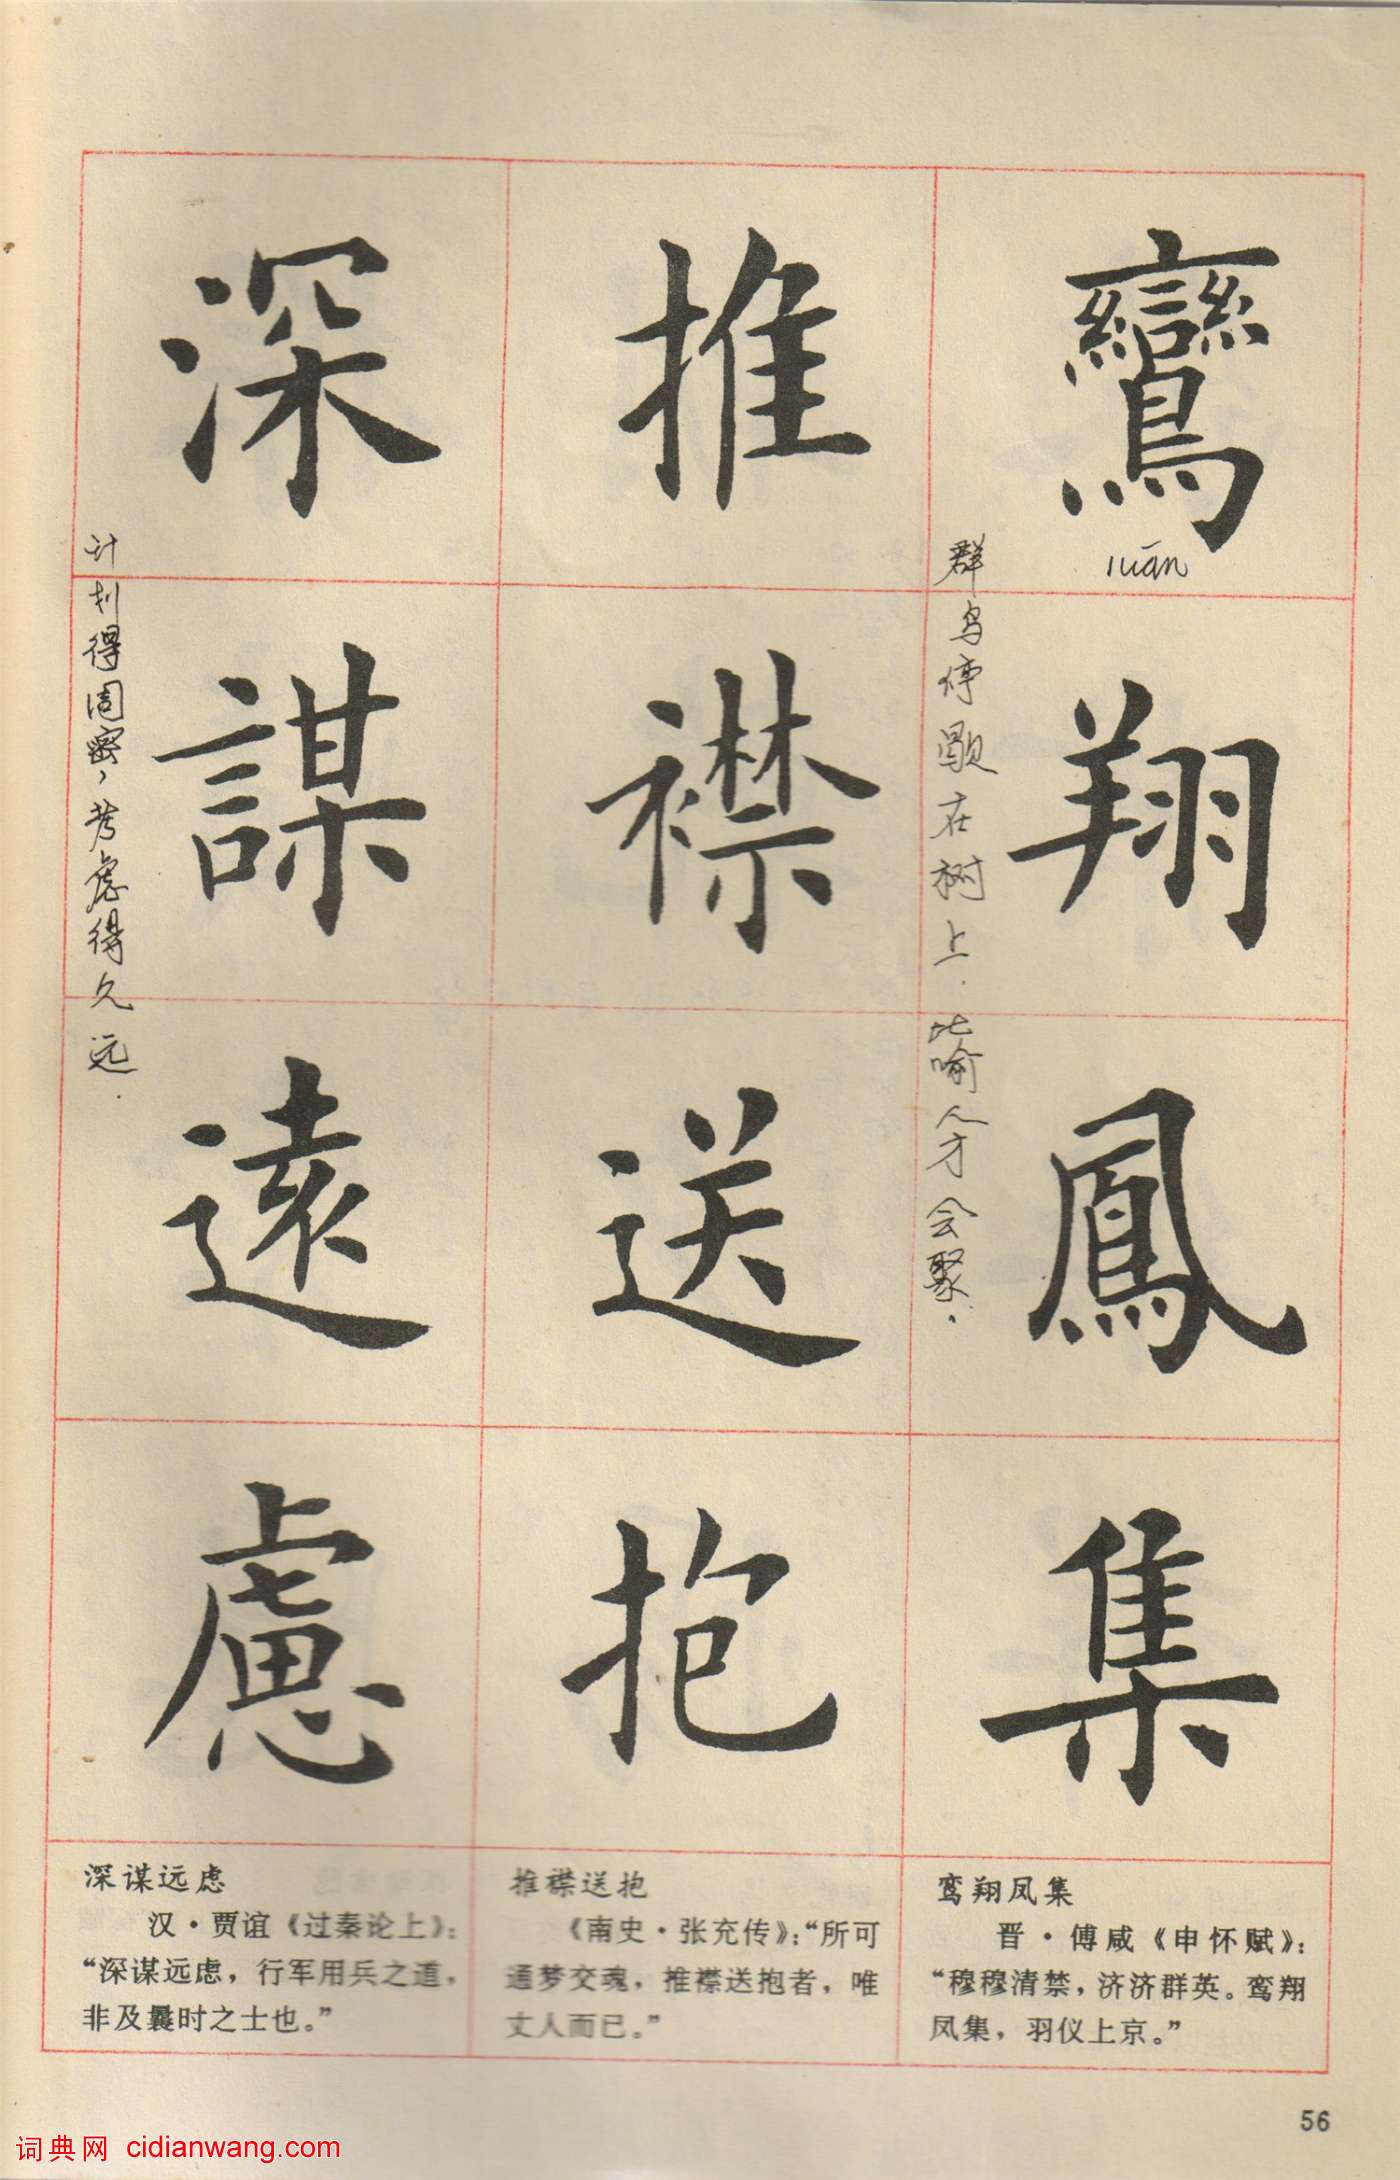 鸞翔鳳集
luán
群鸟停歇在树上.比喻人才会聚.
推襟送抱
深謀遠慮
计划得周密，考虑得久远.
鸾翔凤集
晋·傅咸《申怀赋》：
“穆穆清禁，济济群英。鸾翔
凤集，羽仪上京。”
推襟送抱
《南史·张充传》：“所可
通梦交魂，推襟送抱者，唯
丈人而已。”
深谋远虑
汉·贾谊《过秦论上》：
“深谋远虑，行军用兵之道，
非及曩时之士也。”
56
词典网 cidianwang.com